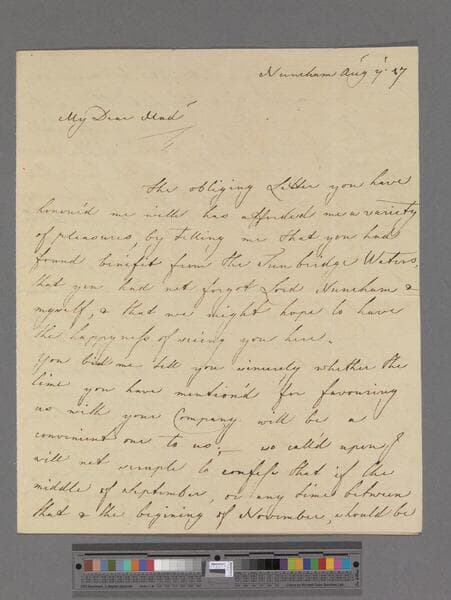 Nuneham Aug ye 27
My Dear Mad
The obliging Letter you have
honour'd me with has afforded me a variety
of pleasures, by telling me that you had
found benefit from the Tunbridge Waters,
that you had not forgot Lord Nuneham &
myself, & that we might hope to have
the happyness of seeing you here.
You bid me tell you sincerely whether the
time you have mention'd for favouring
us with your Company will be a
convenient one to us. so call'd upon I
will not scruple to confess that if the
middle of September, or any time between
that & the begining of November, should be